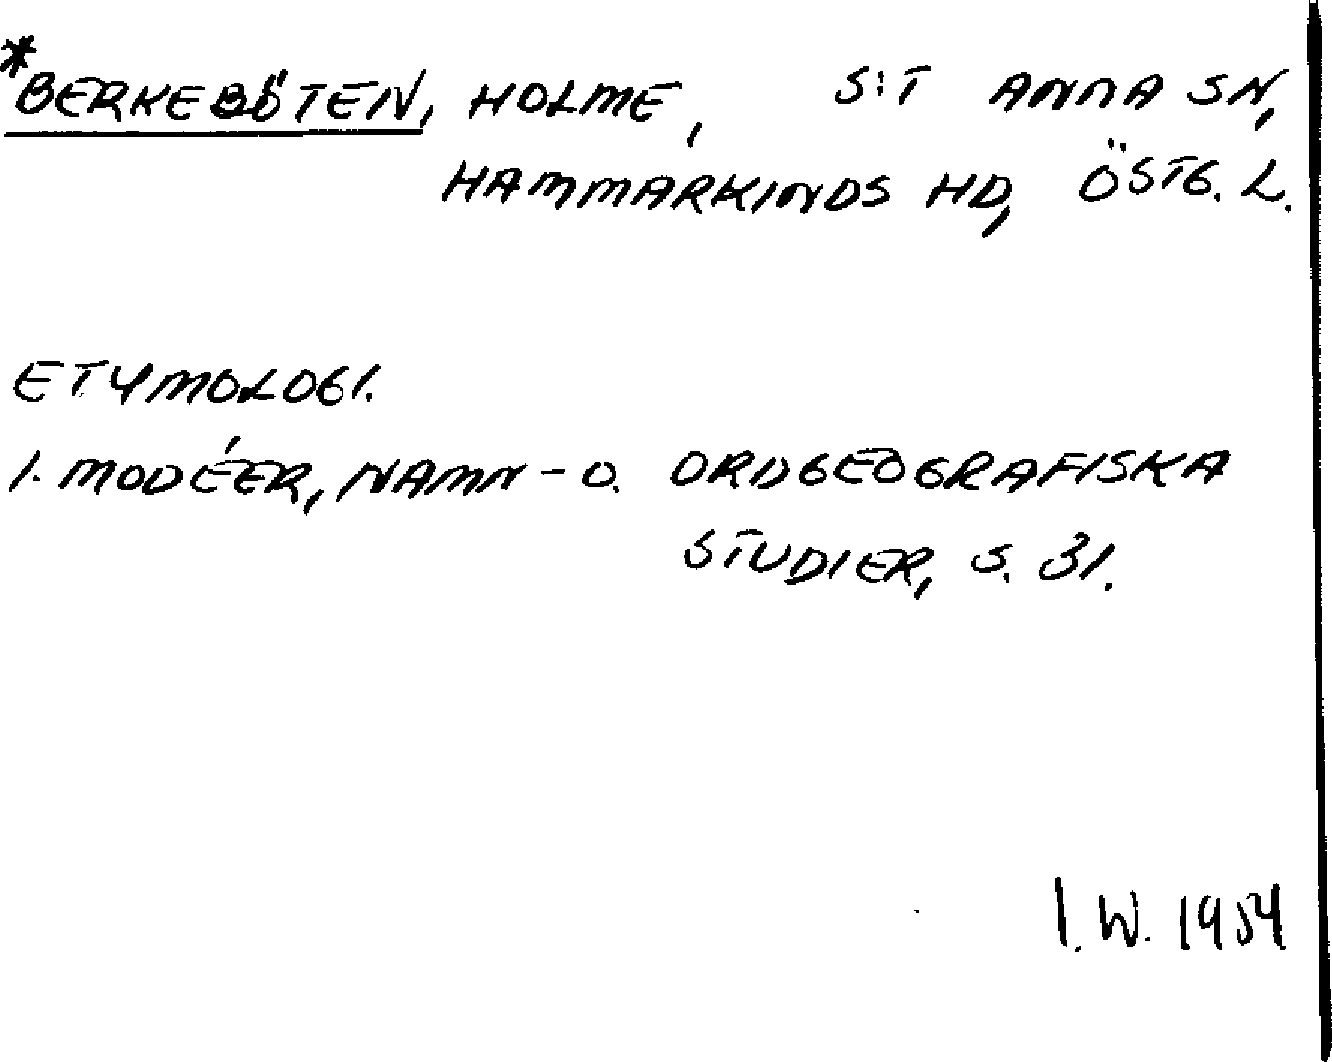 *BERKEBÖTEN, HOLME, S:T ANNA SN,
HAMMARKINDS HD, ÖSTG. L.
ETYMOLOGI.
I. MODÉER, NAMN- O. ORDGEOGRAFISKA
STUDIER, S. 31.
I. W. 1954